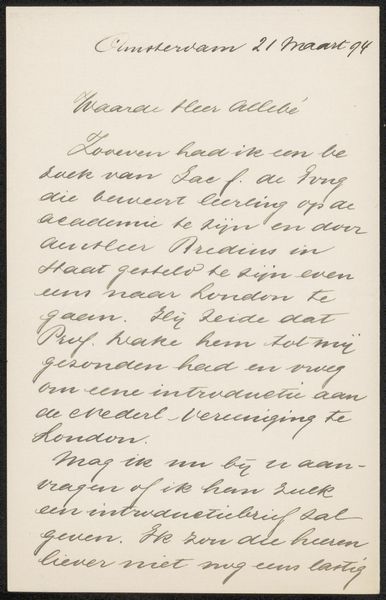 Amsterdam 21 Maart 94
Waarde Heer Allebé
Zooeven had ik een be
zoek van Jac f. de Jong
die beweert leerling op de
academie te zijn en door
den Heer Bredius in
staat gesteld te zijn even
eens naar London te
gaan. Hij zeide dat
Prof. Wake hem tot mij
gezonden had en vroeg
om eene introductie aan
de Nederl. Vereeniging te
London.
Mag ik nu bij u aan-
vragen of ik hem zulk
een introductiebrief zal
geven. Ik zou die heeren
liever niet nog eens lastig